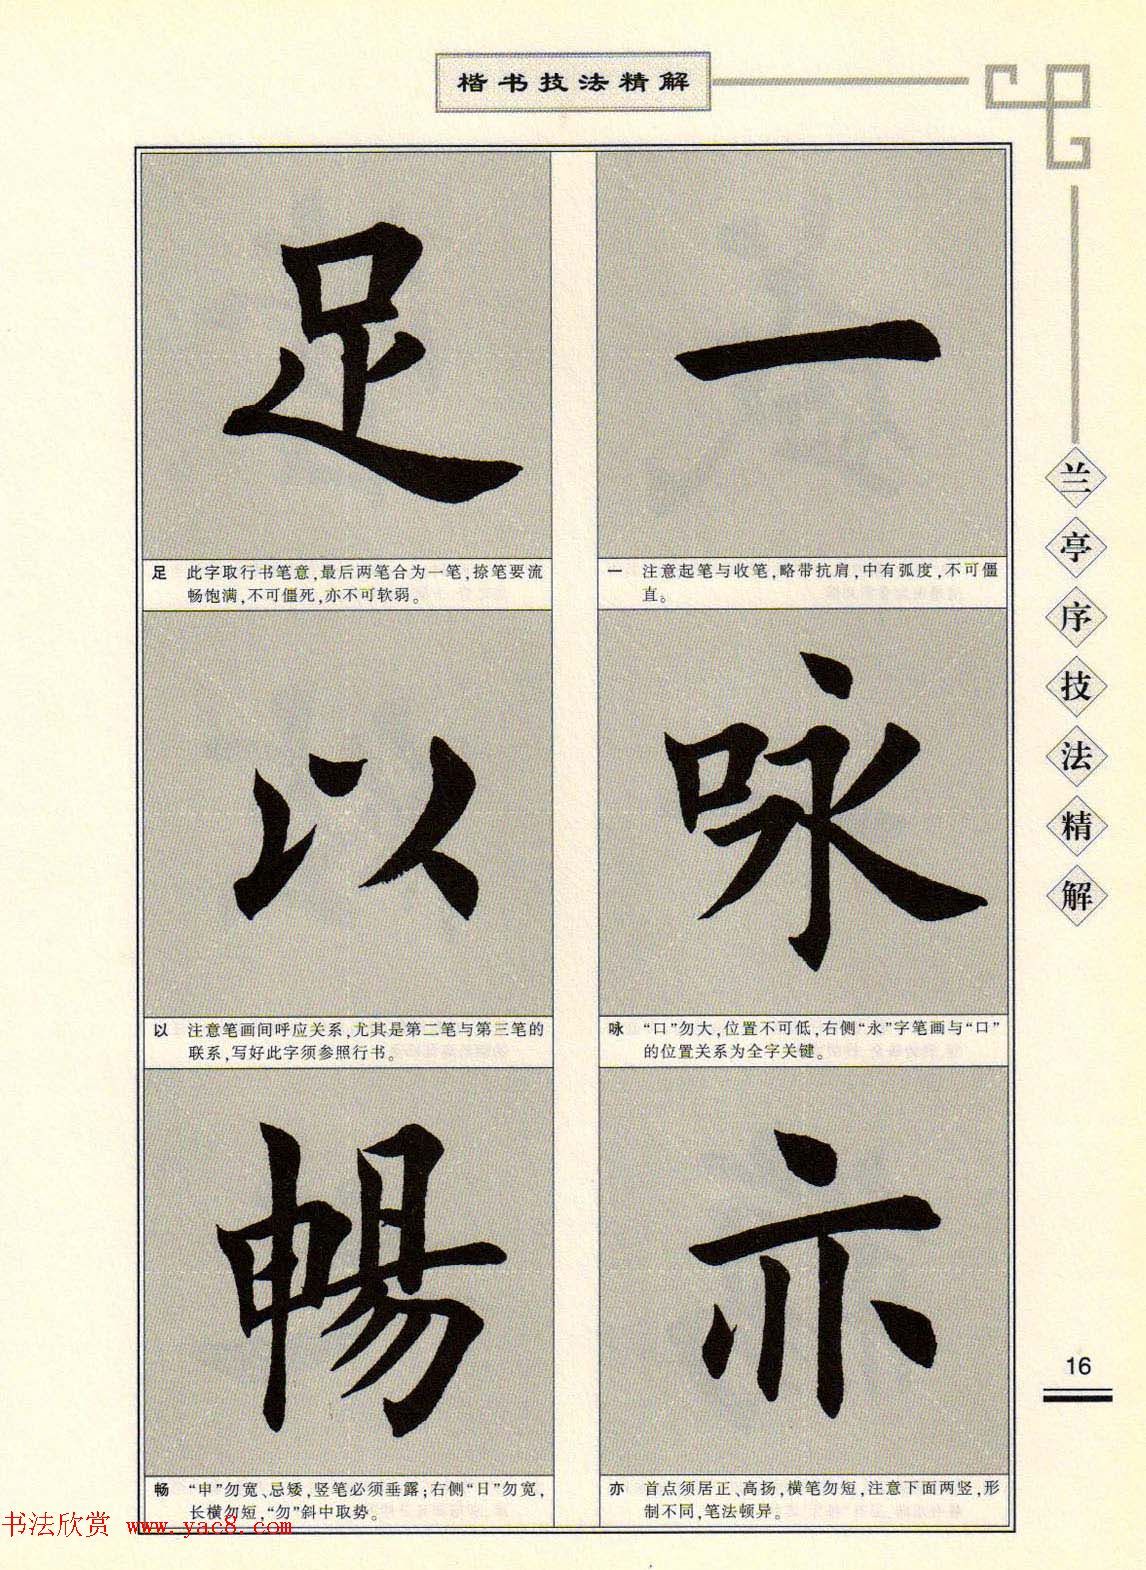 楷书技法精解
兰亭序技法精解
一
一 注意起笔与收笔,略带抗肩,中有弧度,不可僵
直。
咏
咏 “口”勿大,位置不可低,右侧“永”字笔画与“口”
的位置关系为全字关键。
亦
亦 首点须居正、高扬,横笔勿短,注意下面两竖,形
制不同,笔法顿异。
足
足 此字取行书笔意,最后两笔合为一笔,捺笔要流
畅饱满,不可僵死,亦不可软弱。
以
以 注意笔画间呼应关系,尤其是第二笔与第三笔的
联系,写好此字须参照行书。
暢
畅 “申”勿宽、忌矮,竖笔必须垂露;右侧“日”勿宽,
长横勿短,“勿”斜中取势。
16
书法欣赏 www.yac8.com